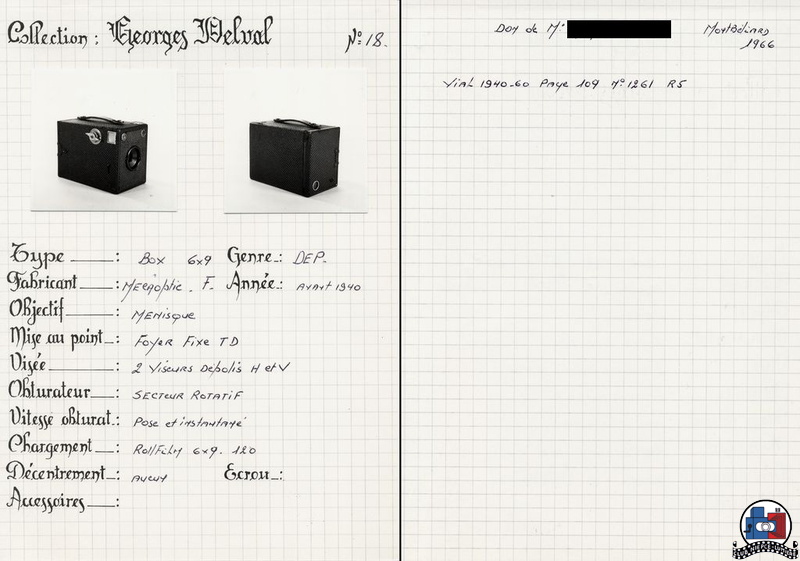 Collection : Georges Delval
N° 18.
Type : Box 6x9 Genre : DEP.
Fabricant : F. Année : avant 1940
Objectif : Menisque
Mise au point : Foyer Fixe TD
Visée : 2 Viseurs Dépolis H et V
Obturateur : Secteur Rotatif
Vitesse obturat. : Pose et instantané
Chargement : RollFilm 6x9. 120
Décentrement : aucun Ecrou :
Accessoires :
Don de Mr Montbéliard
1966
Vial 1940-60 Page 109 N° 1261 R5